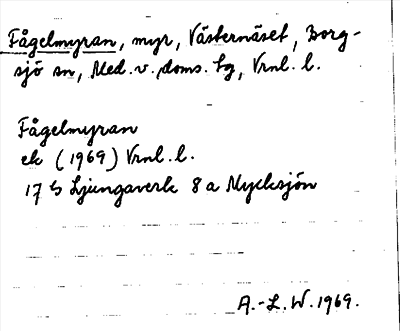 Fågelmyran, myr, Västernäset, Borg-
sjö sn, Med. v. doms. tg, Vrnl. l.
Fågelmyran
ek (1969) Vrnl. l.
17 G Ljungaverk 8 a Mycksjön
A.-L. W. 1969.